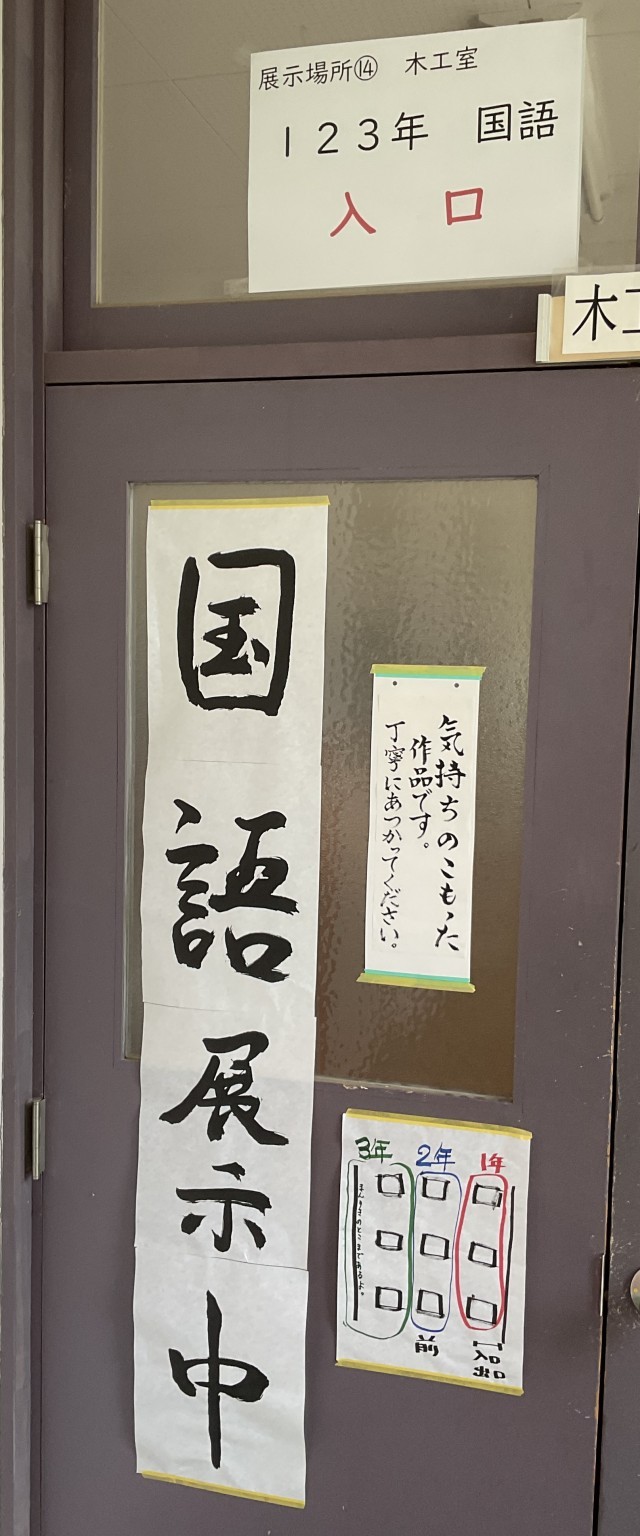 展示場所⑭　木工室
１２３年　国語
入　口
木工
国語展示中
気持ちのこもった
作品です。
丁寧にあつかってください。
3年 2年 1年
前
入口
出口